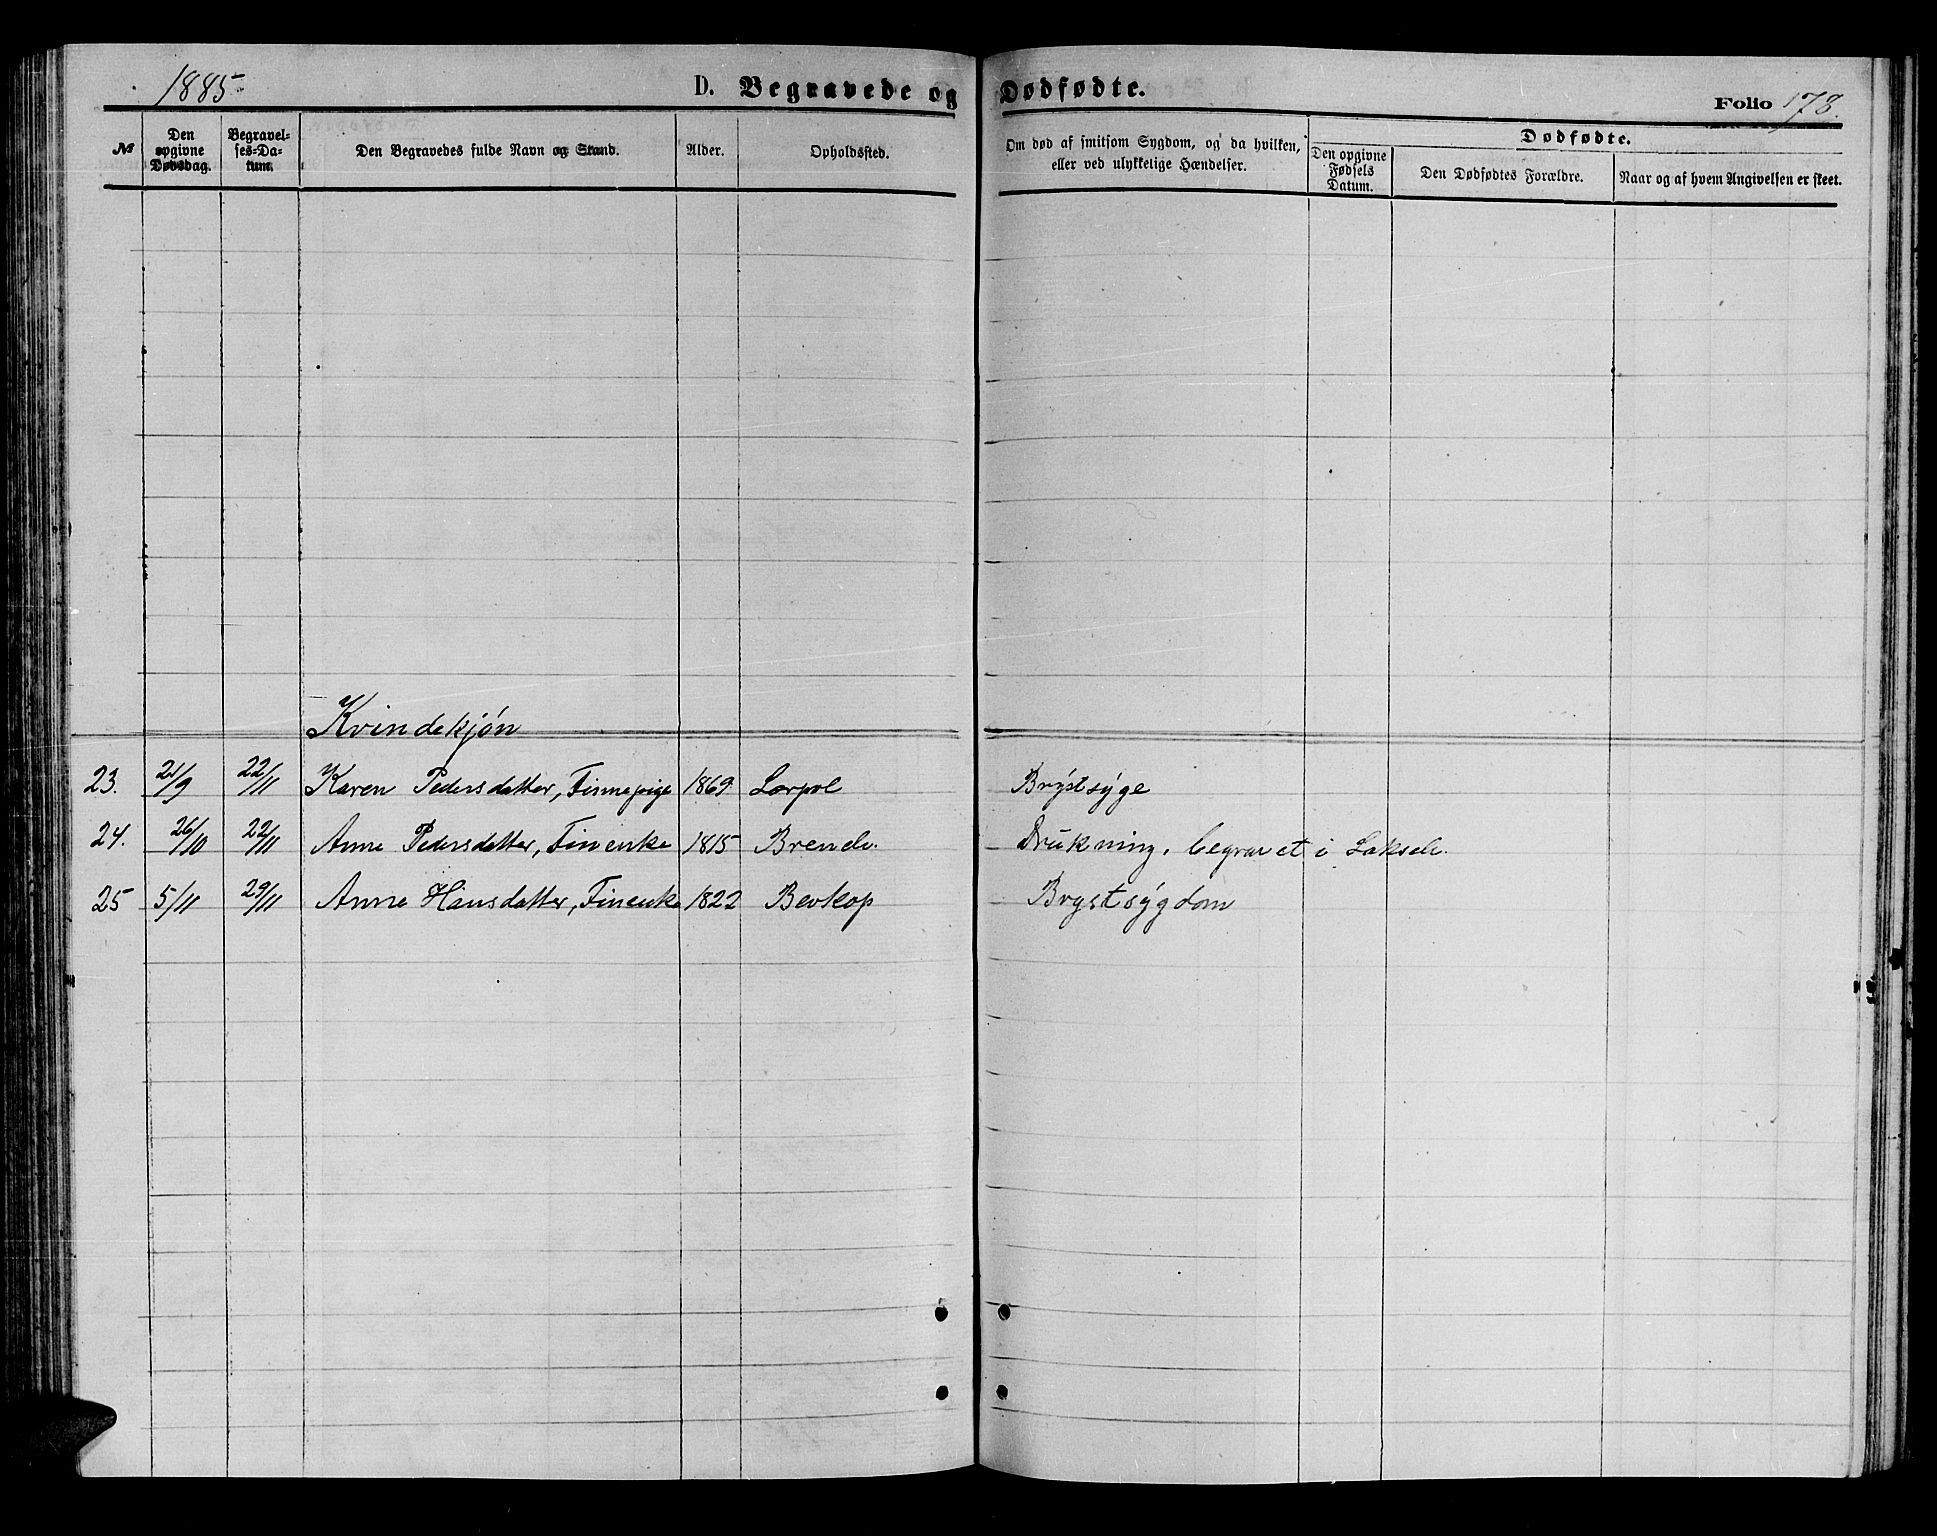 1885
D. Begravede og Dødfødte.
Folio 178.
№ Den opgivne Dødsdag. Begravelses-Datum. Den Begravedes fulde Navn og Stand. Alder. Opholdssted. Om død af smitsom Sygdom, og da hvilken, eller ved ulykkelige Hændelser. Dødfødte. Den opgivne Fødsels Datum. Den Dødfødtes Forældre. Naar og af hvem Angivelsen er skeet.
Kvindekjøn
23. 21/9 22/11 Karen Pedersdatter, Finnepige 1869 Brystsyge
24. 26/10 22/11 Anne Pedersdatter, Finenke 1815 Drukning, begravet i Lakselv.
25 5/11 29/11 Anne Hansdatter, Finenke 1822 Bevkop Brystsygdom